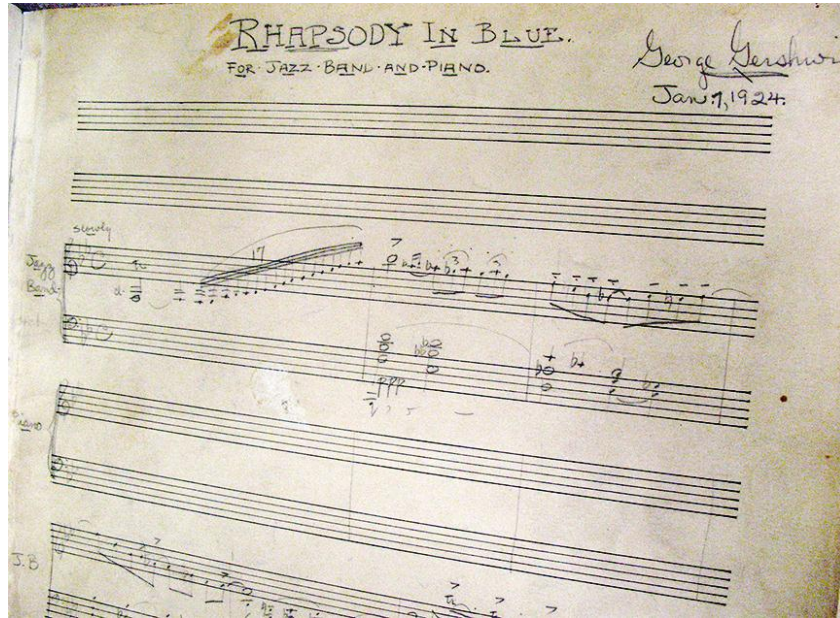 RHAPSODY IN BLUE.
FOR·JAZZ·BAND·AND·PIANO.
George Gershwi
Jan. 7, 1924.
slowly
17
Jazz
Band
3
ppp
Piano
J.B